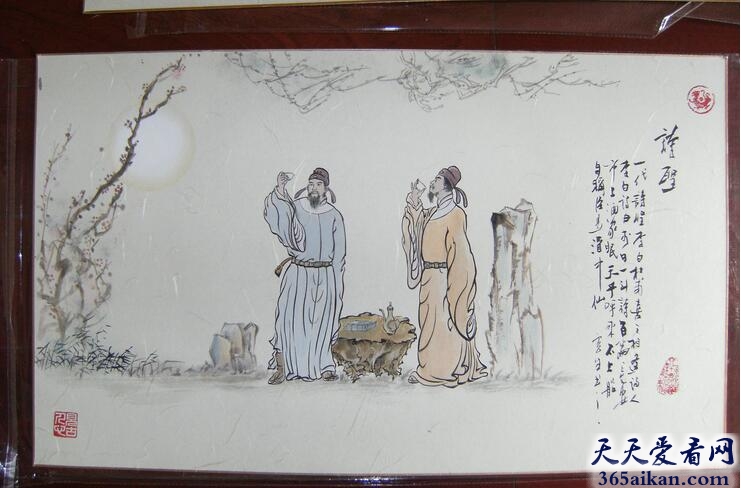 詩聖
一代詩聖李白杜甫喜相逢詩人
李白一斗詩百篇長安
市上酒家眠天子呼來不上船
自稱臣是酒中仙
天天爱看网
365aikan.com